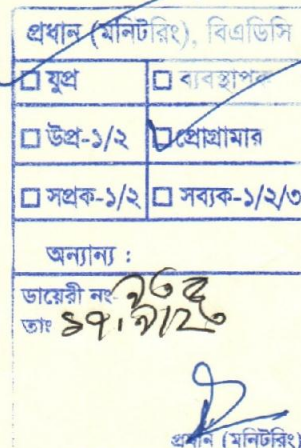 প্রধান (মনিটরিং), বিএডিসি
□ যুপ্র □ ব্যবস্থাপক
□ উপ্র-১/২ □ প্রোগ্রামার
□ সপ্রক-১/২ □ সব্যক-১/২/৩
অন্যান্য :
ডায়েরী নং
তাং
প্রধান (মনিটরিং)